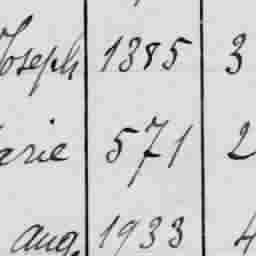 Joseph 1385 3
arie 571 2
aug. 1933 4